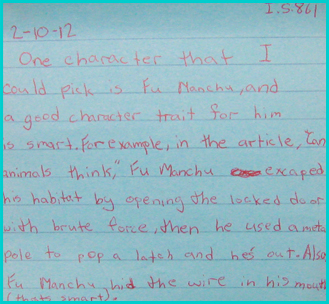 I.S.861
2-10-12
One character that I
could pick is Fu, Manchu, and
a good character trait for him
is smart. For example, in the article, "Can
animals think," Fu Manchu excaped
his habitat by opening the locked door
with brute force, then he used a metal
pole to pop a latch and he's out. Also
Fu Manchu hid the wire in his mouth
(thats smart).